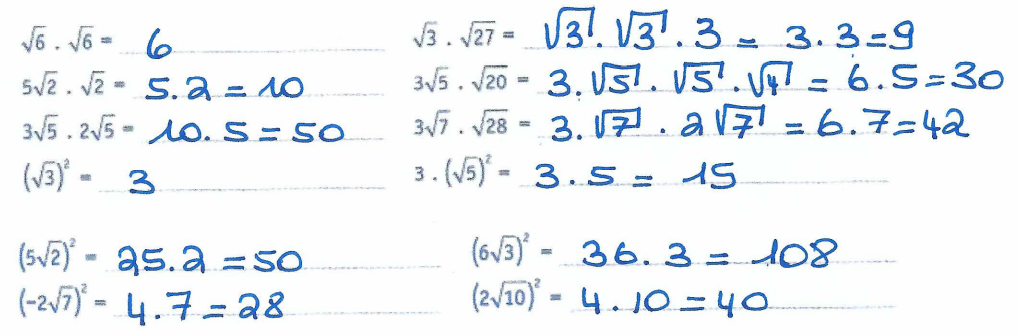 √6 . √6 = 6
5√2 . √2 = 5.2 = 10
3√5 . 2√5 = 10.5 = 50
(√3)² = 3
√3 . √27 = √3 . √3 . 3 = 3.3 = 9
3√5 . √20 = 3.√5 . √5 . √4 = 6.5 = 30
3√7 . √28 = 3.√7 . 2√7 = 6.7 = 42
3 . (√5)² = 3.5 = 15
(5√2)² = 25.2 = 50
(-2√7)² = 4.7 = 28
(6√3)² = 36.3 = 108
(2√10)² = 4.10 = 40